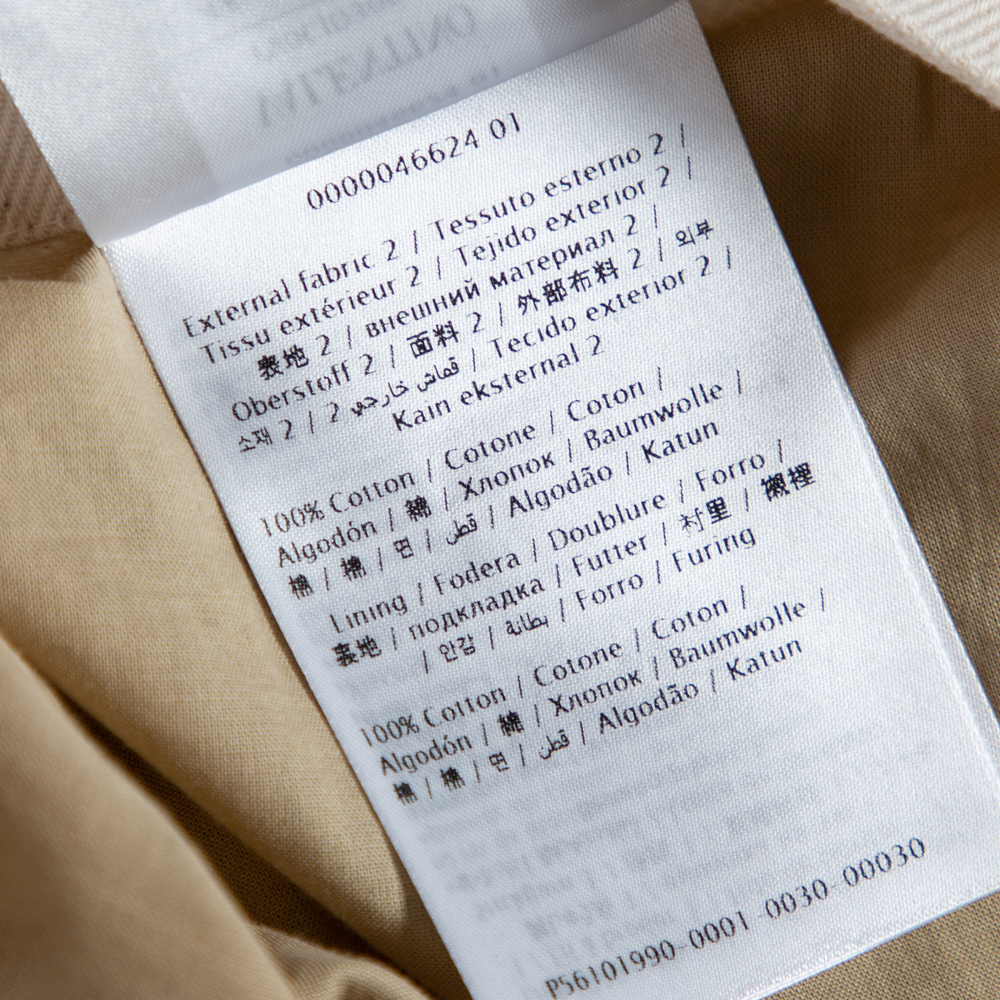 VALENTINO
0000046624 01
External fabric 2 / Tessuto esterno 2 /
Tissu extérieur 2 / Tejido exterior 2 /
表地 2 / внешний материал 2 /
Oberstoff 2 / 面料 2 / 外部布料 2 / 외부
소재 2 / 2 قماش خارجي / Tecido exterior 2 /
Kain eksternal 2
100% Cotton / Cotone / Coton /
Algodón / 綿 / Хлопок / Baumwolle /
棉 / 棉 / 면 / قطن / Algodão / Katun
Lining / Fodera / Doublure / Forro /
表地 / подкладка / Futter / 衬里 / 襯裡
/ 안감 / بطانة / Forro / Furing
100% Cotton / Cotone / Coton /
Algodón / 綿 / Хлопок / Baumwolle /
棉 / 棉 / 면 / قطن / Algodão / Katun
P56101990-0001-0030-00030